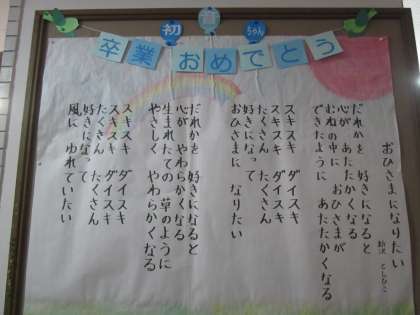 初 音 ちゃん
卒業おめでとう
おひさまになりたい
新沢 としひこ
だれかを 好きになると
心が あたたかくなる
むねの中に おひさまが
できたように あたたかくなる
スキスキ ダイスキ
スキスキ ダイスキ
たくさん たくさん
好きになって
おひさまに なりたい
だれかを 好きになると
心が やわらかくなる
生まれたての 草のように
やさしく やわらかくなる
スキスキ ダイスキ
スキスキ ダイスキ
たくさん たくさん
好きになって
風に ゆれていたい